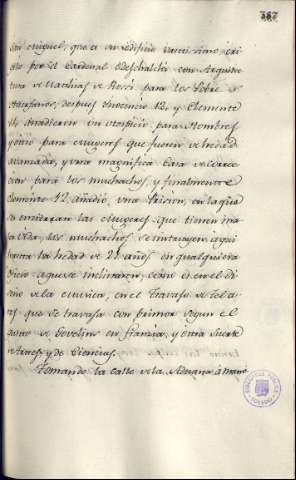 387
San Miguel, que es un edificio vastissimo, eri-
gido por el Cardenal Odeschalchi con Arquite-
tura de Mathias de Rossi, para los Pobres
huerfanos, despues Inocencio 12, y Clemente
11 añadieron un Hospicio para Hombres
y otro para Mugeres que fuesen de hedad
avanzada, y una magnifica Casa de Correc-
cion para los muchachos, y finalmente
Clemente 12 añadió una Prision, en la qual
se encierran las Mugeres que tienen ma-
la vida, los muchachos se mantienen aqui
hasta la hedad de 21 años en qualquiera
oficio a que se inclinaren, como es en el di-
seño de la musica, en el Travajo de Telares
que se travaja con primor segun el
gusto de Govelins en francia, y otra suerte
de Artes, y de Ciencias.
Tomando la calle de la Aduana à mano